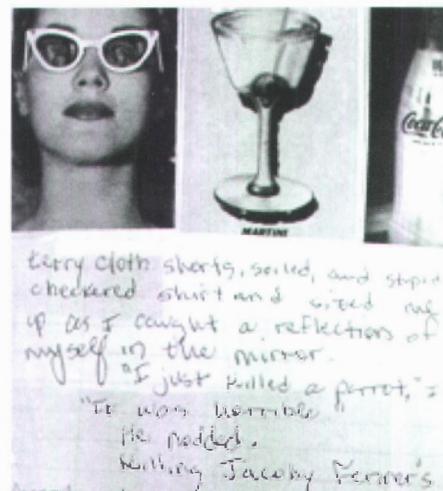 Coca-Cola
MARTINI
terry cloth shorts, soiled, and stupid
checkered shirt and sized me
up as I caught a reflection of
myself in the mirror.
"I just killed a parrot,"
"It was horrible"
He nodded.
Killing Jacoby